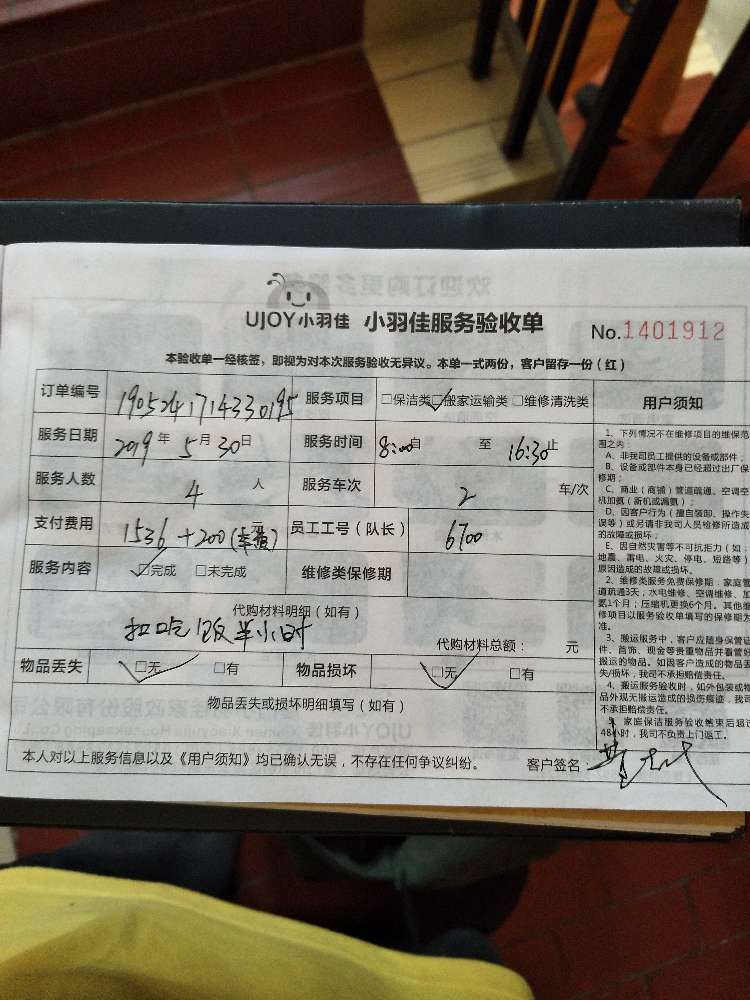 UJOY小羽佳 小羽佳服务验收单 No.1401912
本验收单一经核签，即视为对本次服务验收无异议。本单一式两份，客户留存一份（红）
订单编号 1905241714330195 服务项目 □保洁类 □搬家运输类 □维修清洗类
服务日期 2019年5月30日 服务时间 8:00自 至 16:30止
服务人数 4 人 服务车次 2 车/次
支付费用 1536+200( 元 员工工号（队长） 6700
服务内容 □完成 □未完成 维修类保修期
代购材料明细（如有）
扣吃饭半小时
代购材料总额： 元
物品丢失 □无 □有 物品损坏 □无 □有
物品丢失或损坏明细填写（如有）
本人对以上服务信息以及《用户须知》均已确认无误，不存在任何争议纠纷。 客户签名：
用户须知
1、下列情况不在维修项目的维保范
围之内：
A、非我司员工提供的设备或部件；
B、设备或部件本身已经超过出厂保
修期；
C、商业（商铺）管道疏通、空调空
机加氨（新机或漏氨）；
D、因客户行为（擅自装卸、操作失
误等）或另请非我司人员检修所造成
的故障或损坏；
E、因自然灾害等不可抗拒力（如：
地震、雷电、火灾、停电、短路等）
原因造成的故障或损坏。
2、维修类服务免费保修期：家庭管
道疏通3天；水电维修、空调维修、加
氨1个月；压缩机更换6个月。其他维
修项目以服务验收单填写的保修期为
准。
3、搬运服务中，客户应随身保管证
件、首饰、现金等贵重物品并看管好
搬运的物品。如因客户造成的物品丢
失/损坏，我司不承担赔偿责任。
4、搬运服务验收时，如外包装或物
品外观无搬运造成的损伤痕迹，我司
不承担赔偿责任。
家庭保洁服务验收结束后超过
48小时，我司不负责上门返工。